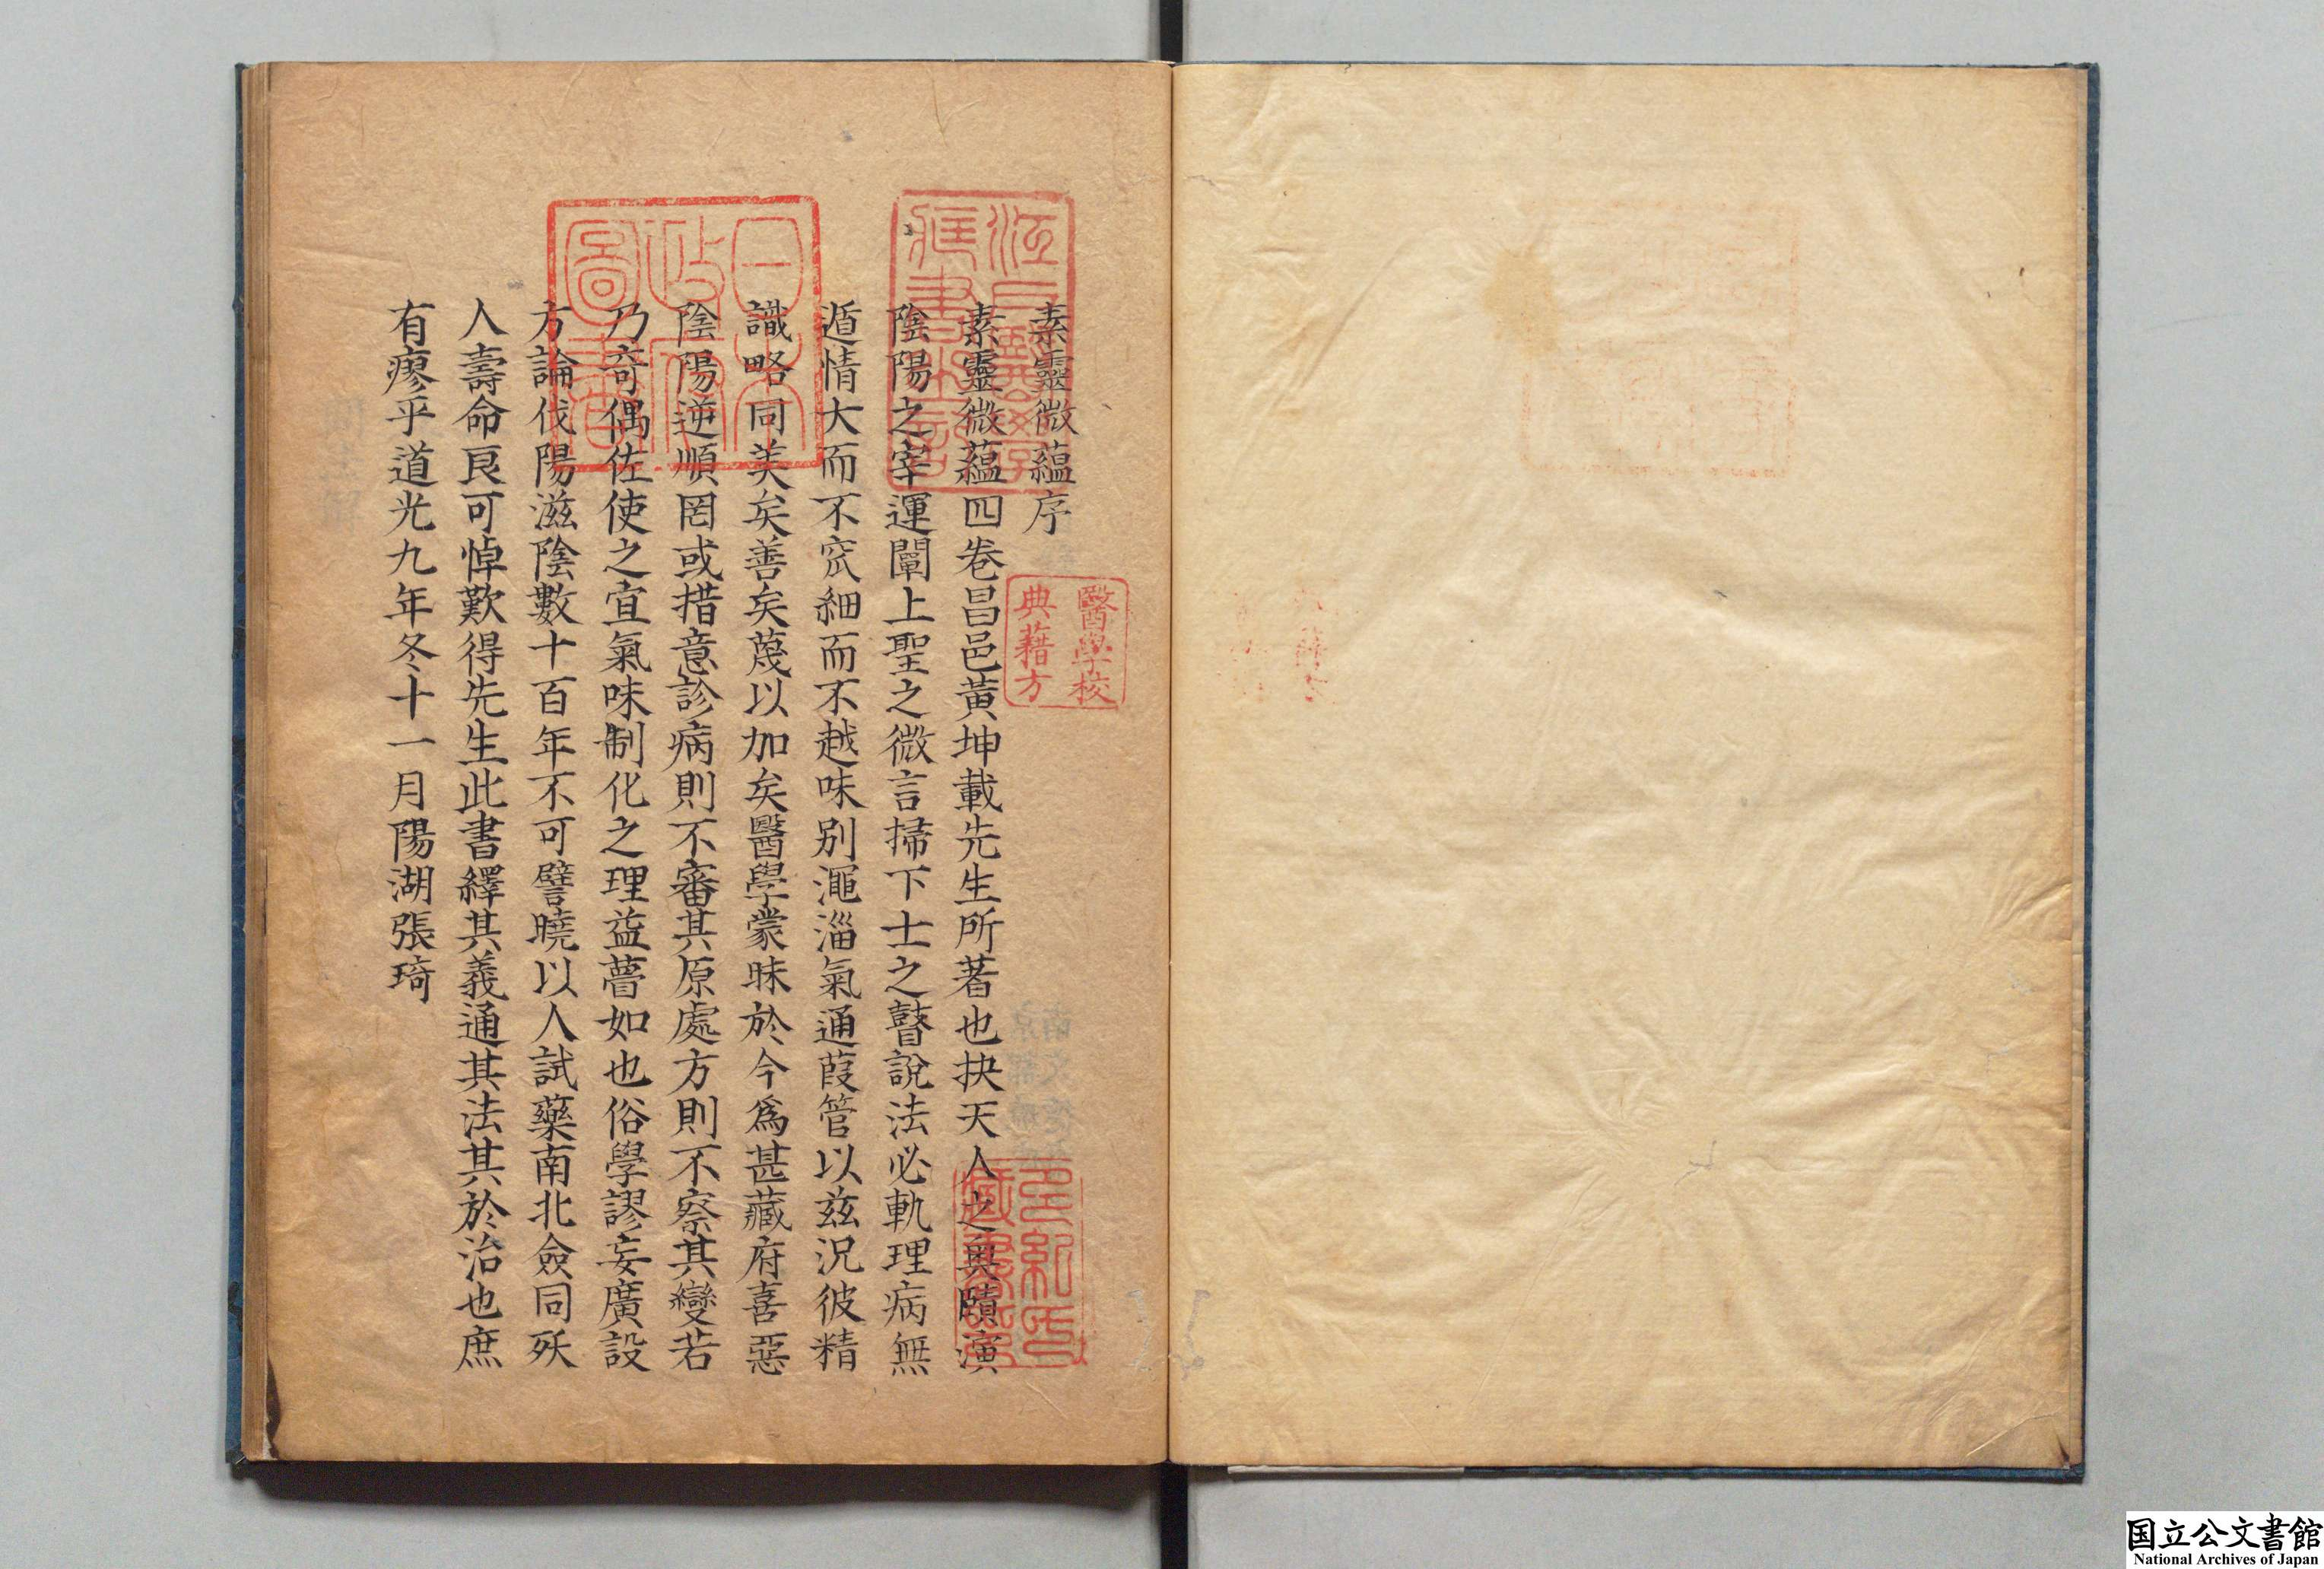 素靈微蘊序
素靈微蘊四卷昌邑黃坤載先生所著也抉天人之奧賾演
陰陽之宰運闡上聖之微言掃下士之瞽說法必軌理病無
遁情大而不窕細而不越味別澠淄氣通葭管以茲況彼精
識略同美矣善矣蔑以加矣醫學蒙昧於今爲甚藏府喜惡
陰陽逆順罔或措意診病則不審其原處方則不察其變若
乃奇偶佐使之宜氣味制化之理益瞢如也俗學謬妄廣設
方論伐陽滋陰數十百年不可譬曉以人試藥南北僉同殀
人壽命良可悼歎得先生此書繹其義通其法其於治也庶
有瘳乎道光九年冬十一月陽湖張琦
醫學校
典藉方
日本
政府
圖書
国立公文書館
National Archives of Japan